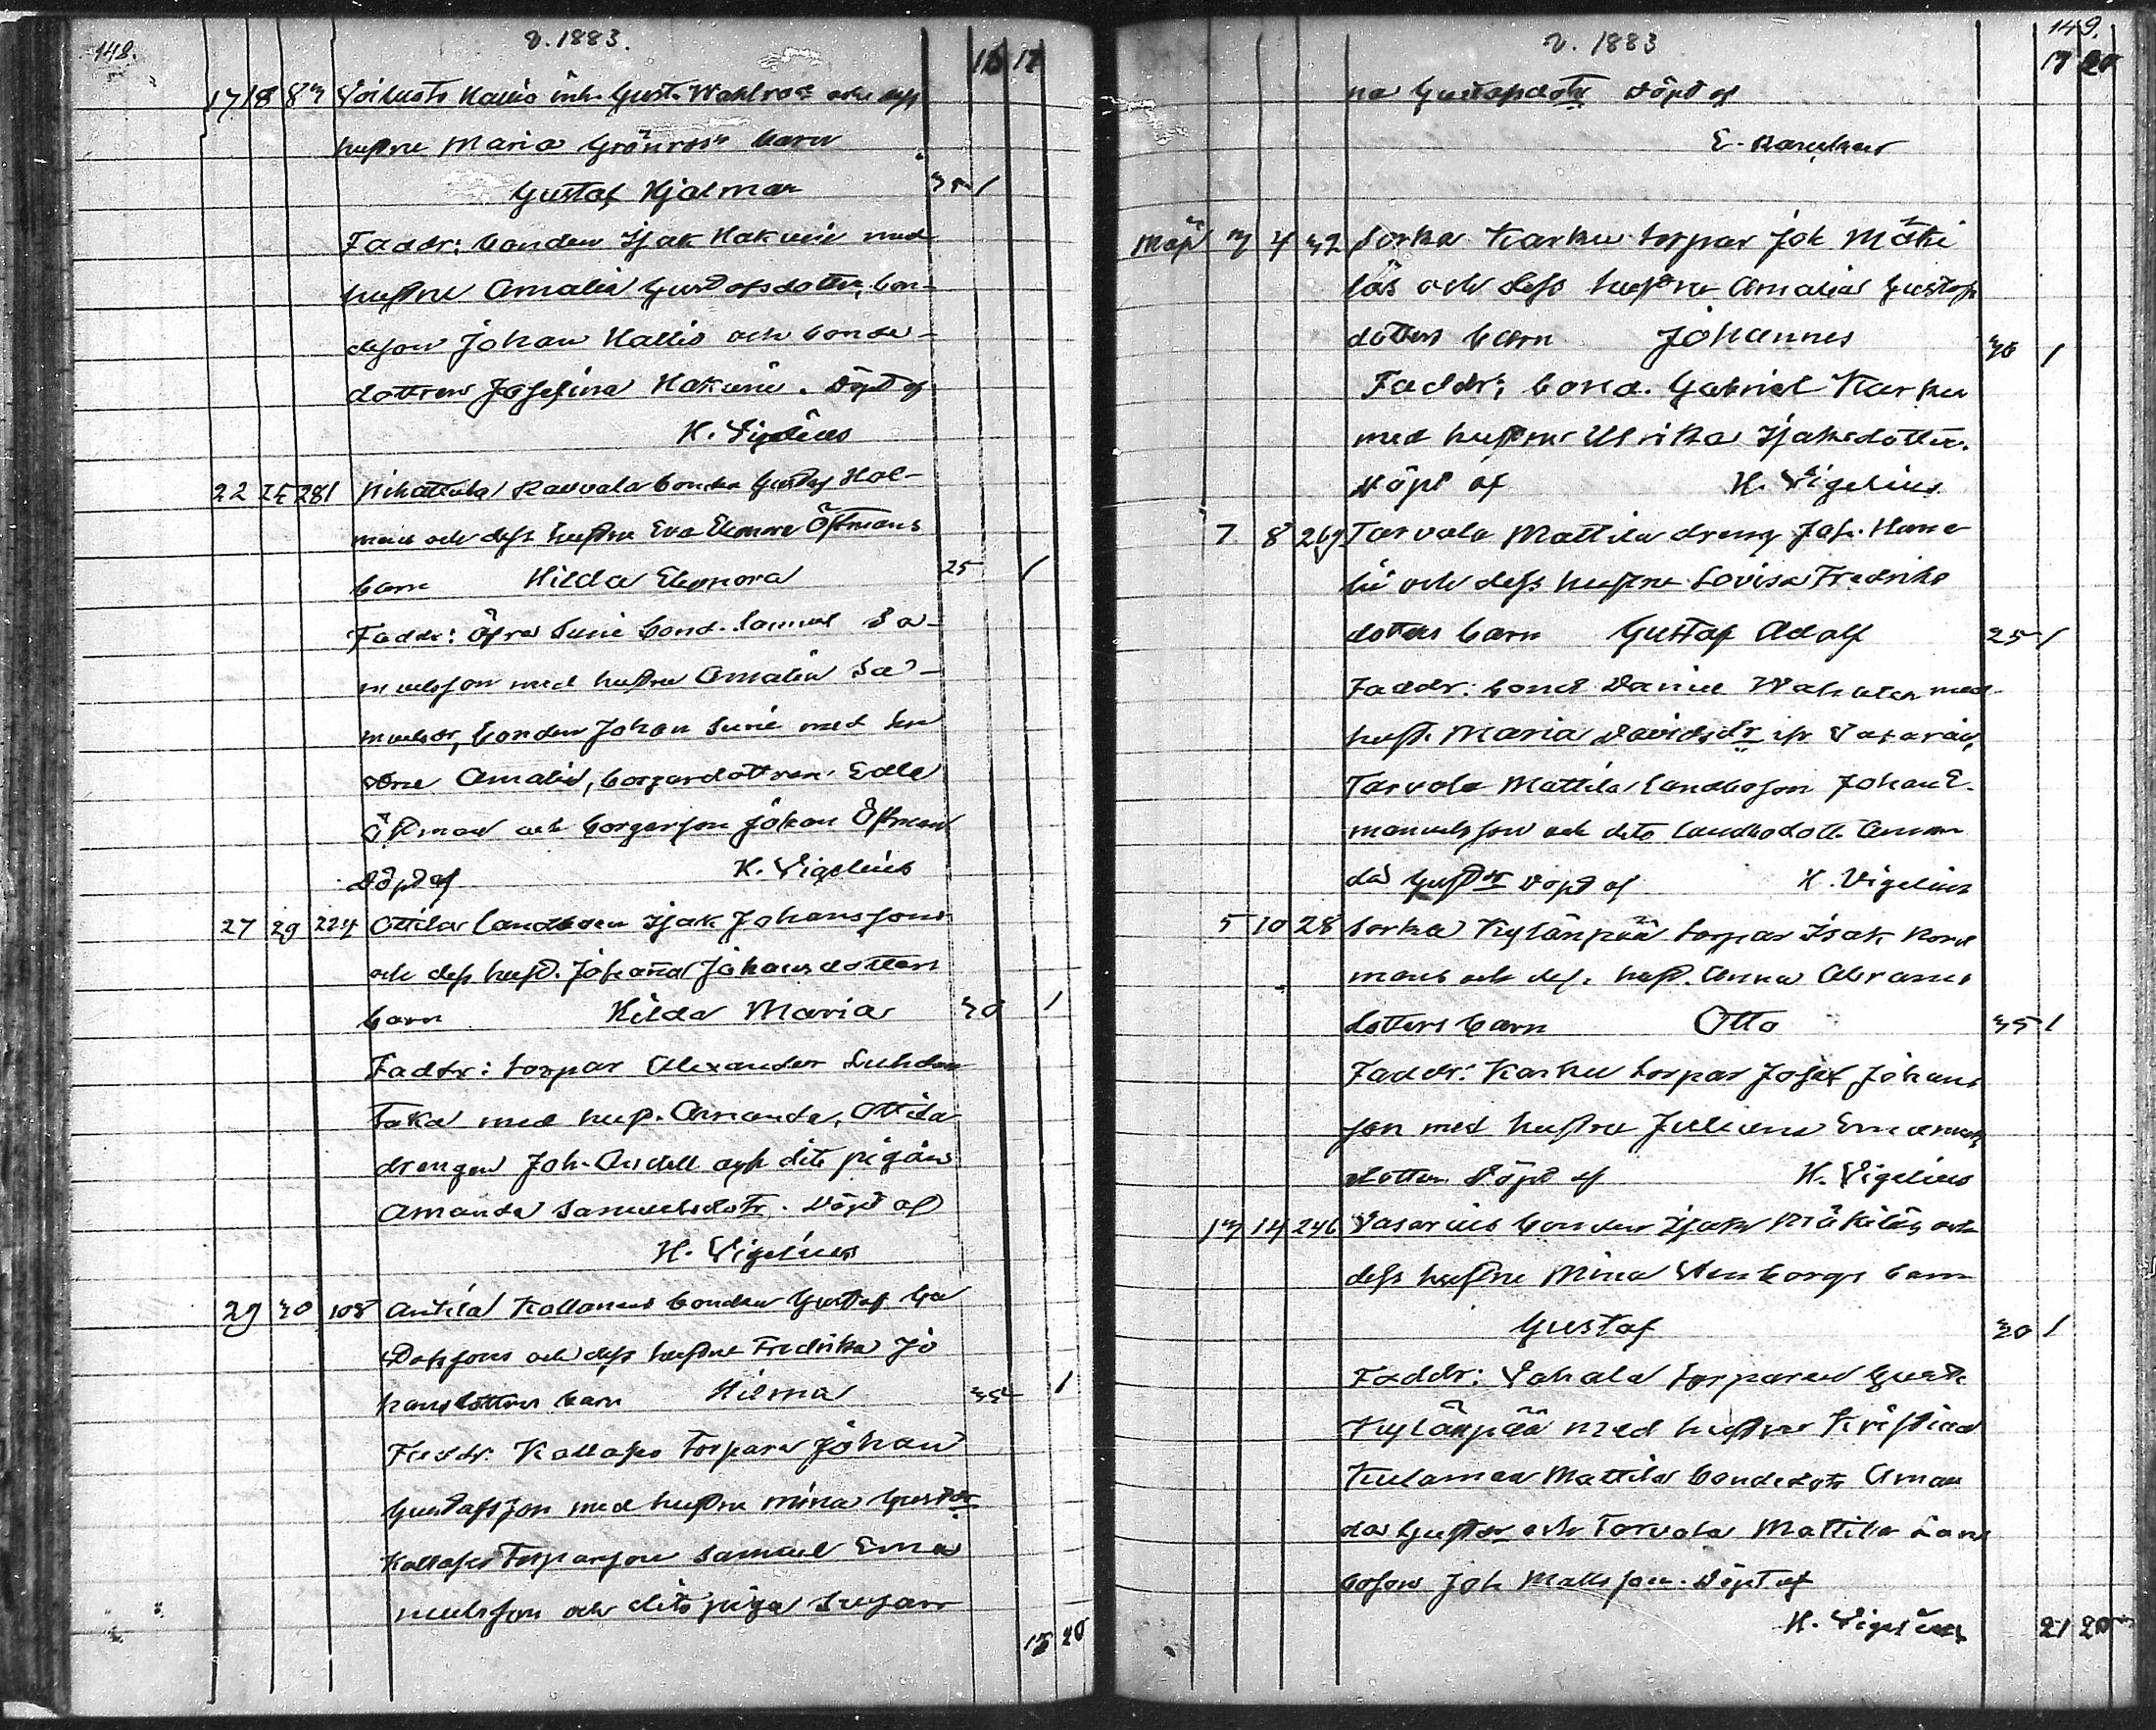 148.
v. 1883.
16 17
17 18 87 Voitusto Kallis inh. Gust. Wahlroos och dess
hustru Maria Grönroos barn
Gustaf Hjalmar 35 1
Faddr: bonden Isak Hakuni med
hustru Amalia Gustafsdotter, bon-
deson Johan Kallis och bonde-
dottren Josefina Hakuni. Döpt af
K. Vigelius
22 25 281 Rauvala bonde Gustaf Hol-
mens och dess hustru Eva Eleonora Östmans
barn Hilda Eleonora 25 1
Faddr: Öfre Sunie bond. Samuel Sa-
muelsson med hustru Amalia Sa-
muelsdr, bonden Johan Sunie med hu
stru Amalia, borgardottren Edla
Östman och borgarson Johan Östman
Döpt af K. Vigelius
27 29 224 Ottila landboen Isak Johanssons
och dess hust. Johanna Johansdotters
barn Hilda Maria 30 1
Faddr: torpar Alexander
med hust. Amanda, Ottila
drengen Joh. Andell och dito pigan
Amanda Samuelsdotr. Döpt af
K. Vigelius
29 30 108 Anttila Kallonens bonden Gustaf Ga
och dess hustru Fredrika Jo
hansdotters barn Hilma 35 1
Faddr: Torparn Johan
Gustafsson med hustru Mina Gustdr
Torparson Samuel Ema
nuelsson och dito piga Susan
18 20
149.
v. 1883
18 20
na Gustafsdotr Döpt af
E.
Maji 3 4 32 Sorka Karhu torpar Joh Mäki
läs och dess hustru Amalia Gustafs
dotters barn Johannes 30 1
Faddr: bond. Gabriel Karhu
med hustru Ulrika Isaksdotter.
Döpt af K. Vigelius
7 8 269 Tarvala Mattila dreng Joh. Hanne
li och dess hustru Lovisa Fredriks
dotters barn Gustaf Adolf 25 1
Faddr: bond Daniel med
hust. Maria Davidsdr ifr Vasarais,
Tarvala Mattila landboson Johan E-
manuelsson och dito landbodotr Aman
da Gustdr Döpt af K. Vigelius
5 10 28 Sorka Kylänpää torpar Isak Nord
mans och des. hust. Anna Abrams
dotters barn Otto 35 1
Faddr: Karhu torpar Josef Johans
son med hustru Juliana Emanuels
dotter Döpt af K. Vigelius
13 14 246 Vasarais bonden Isak Mäkiläs och
dess hustru Mina Stenborgs barn
Gustaf 30 1
Faddr: Sahala torparen Gust.
Kylänpää med hustru Kristina
Kulamaa Mattila bondedotr Aman
da Gustdr och Tarvala Mattila Land
boson Joh Mattsson. Döpt af
K. Vigelius
21 20